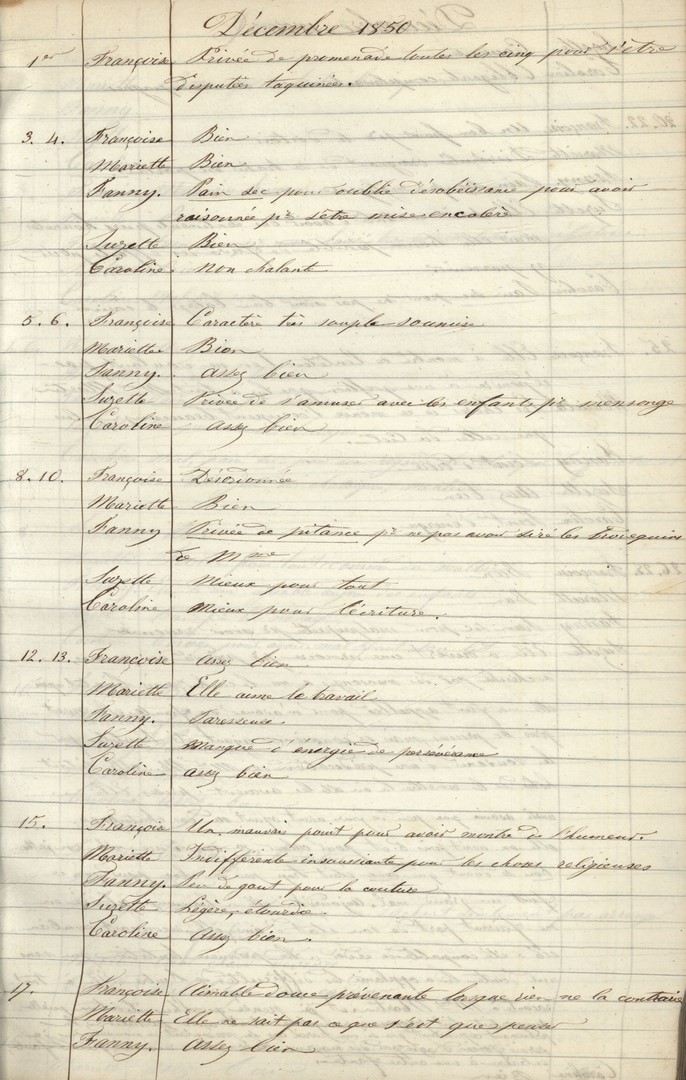 Décembre 1850
1er Françoise Privée de promenade toutes les cinq pour s'être
disputées taquinées.
3. 4. Françoise Bien
Mariette Bien
Fanny. Pain sec pour oublie désobéissance pour avoir
raisonnée pr s'être mise en colère
Suzette Bien
Caroline non chalante
5. 6. Françoise Caractère très souple soumise
Mariette. Bien
Fanny. assez bien
Suzette Privée de s'amuser avec les enfants pr mensonge
Caroline assez bien
8. 10. Françoise Désordonnée
Mariette Bien
Fanny Privée de pitance pr ne pas avoir ciré les brodequins
de Mme
Suzette Mieux pour tout
Caroline Mieux pour l'écriture.
12. 13. Françoise assez bien
Mariette Elle aime le travail
Fanny. Paresseuse
Suzette manque d'énergie de persévérance
Caroline assez bien
15. Françoise Un mauvais point pour avoir montré de l'humeur.
Mariette Indifférente insouciante pour les choses religieuses
Fanny. Peu de gout pour la couture
Suzette Légère, étourdie
Caroline Assez bien.
17. Françoise Aimable douce prévenante lorsque rien ne la contrarie
Mariette Elle ne sait pas ce que c'est que penser
Fanny. Assez bien